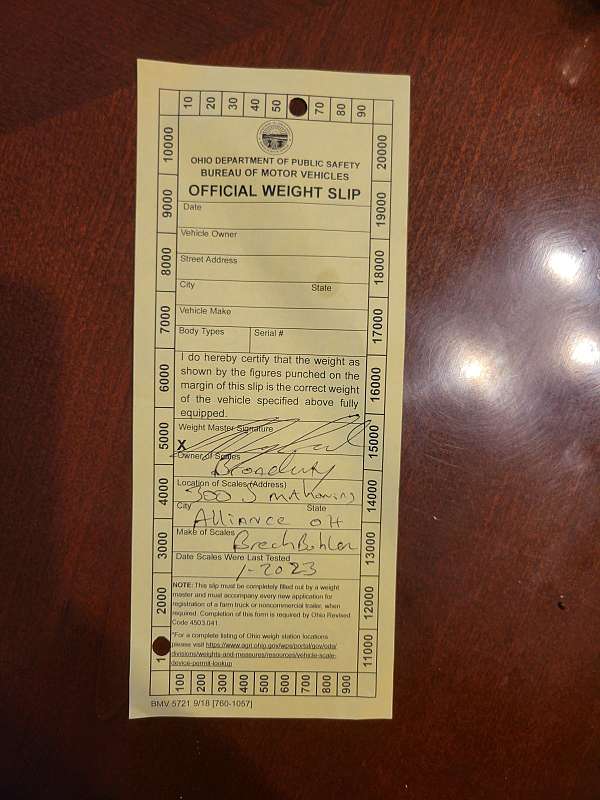 10 20 30 40 50 70 80 90
10000 9000 8000 7000 6000 5000 4000 3000 2000 1
20000 19000 18000 17000 16000 15000 14000 13000 12000 11000
OHIO DEPARTMENT OF PUBLIC SAFETY
BUREAU OF MOTOR VEHICLES
OFFICIAL WEIGHT SLIP
Date
Vehicle Owner
Street Address
City State
Vehicle Make
Body Types Serial #
I do hereby certify that the weight as
shown by the figures punched on the
margin of this slip is the correct weight
of the vehicle specified above fully
equipped.
Weight Master Signature
X
Owner of Scales
Broadway
Location of Scales (Address)
300 S Mahoning
City State
Alliance OH
Make of Scales
BrechBohler
Date Scales Were Last Tested
1-2023
NOTE: This slip must be completely filled out by a weight
master and must accompany every new application for
registration of a farm truck or noncommercial trailer, when
required. Completion of this form is required by Ohio Revised
Code 4503.041.
*For a complete listing of Ohio weigh station locations
please visit https://www.agri.ohio.gov/wps/portal/gov/oda/
divisions/weights-and-measures/resources/vehicle-scale-
device-permit-lookup
100 200 300 400 500 600 700 800 900
BMV 5721 9/18 [760-1057]